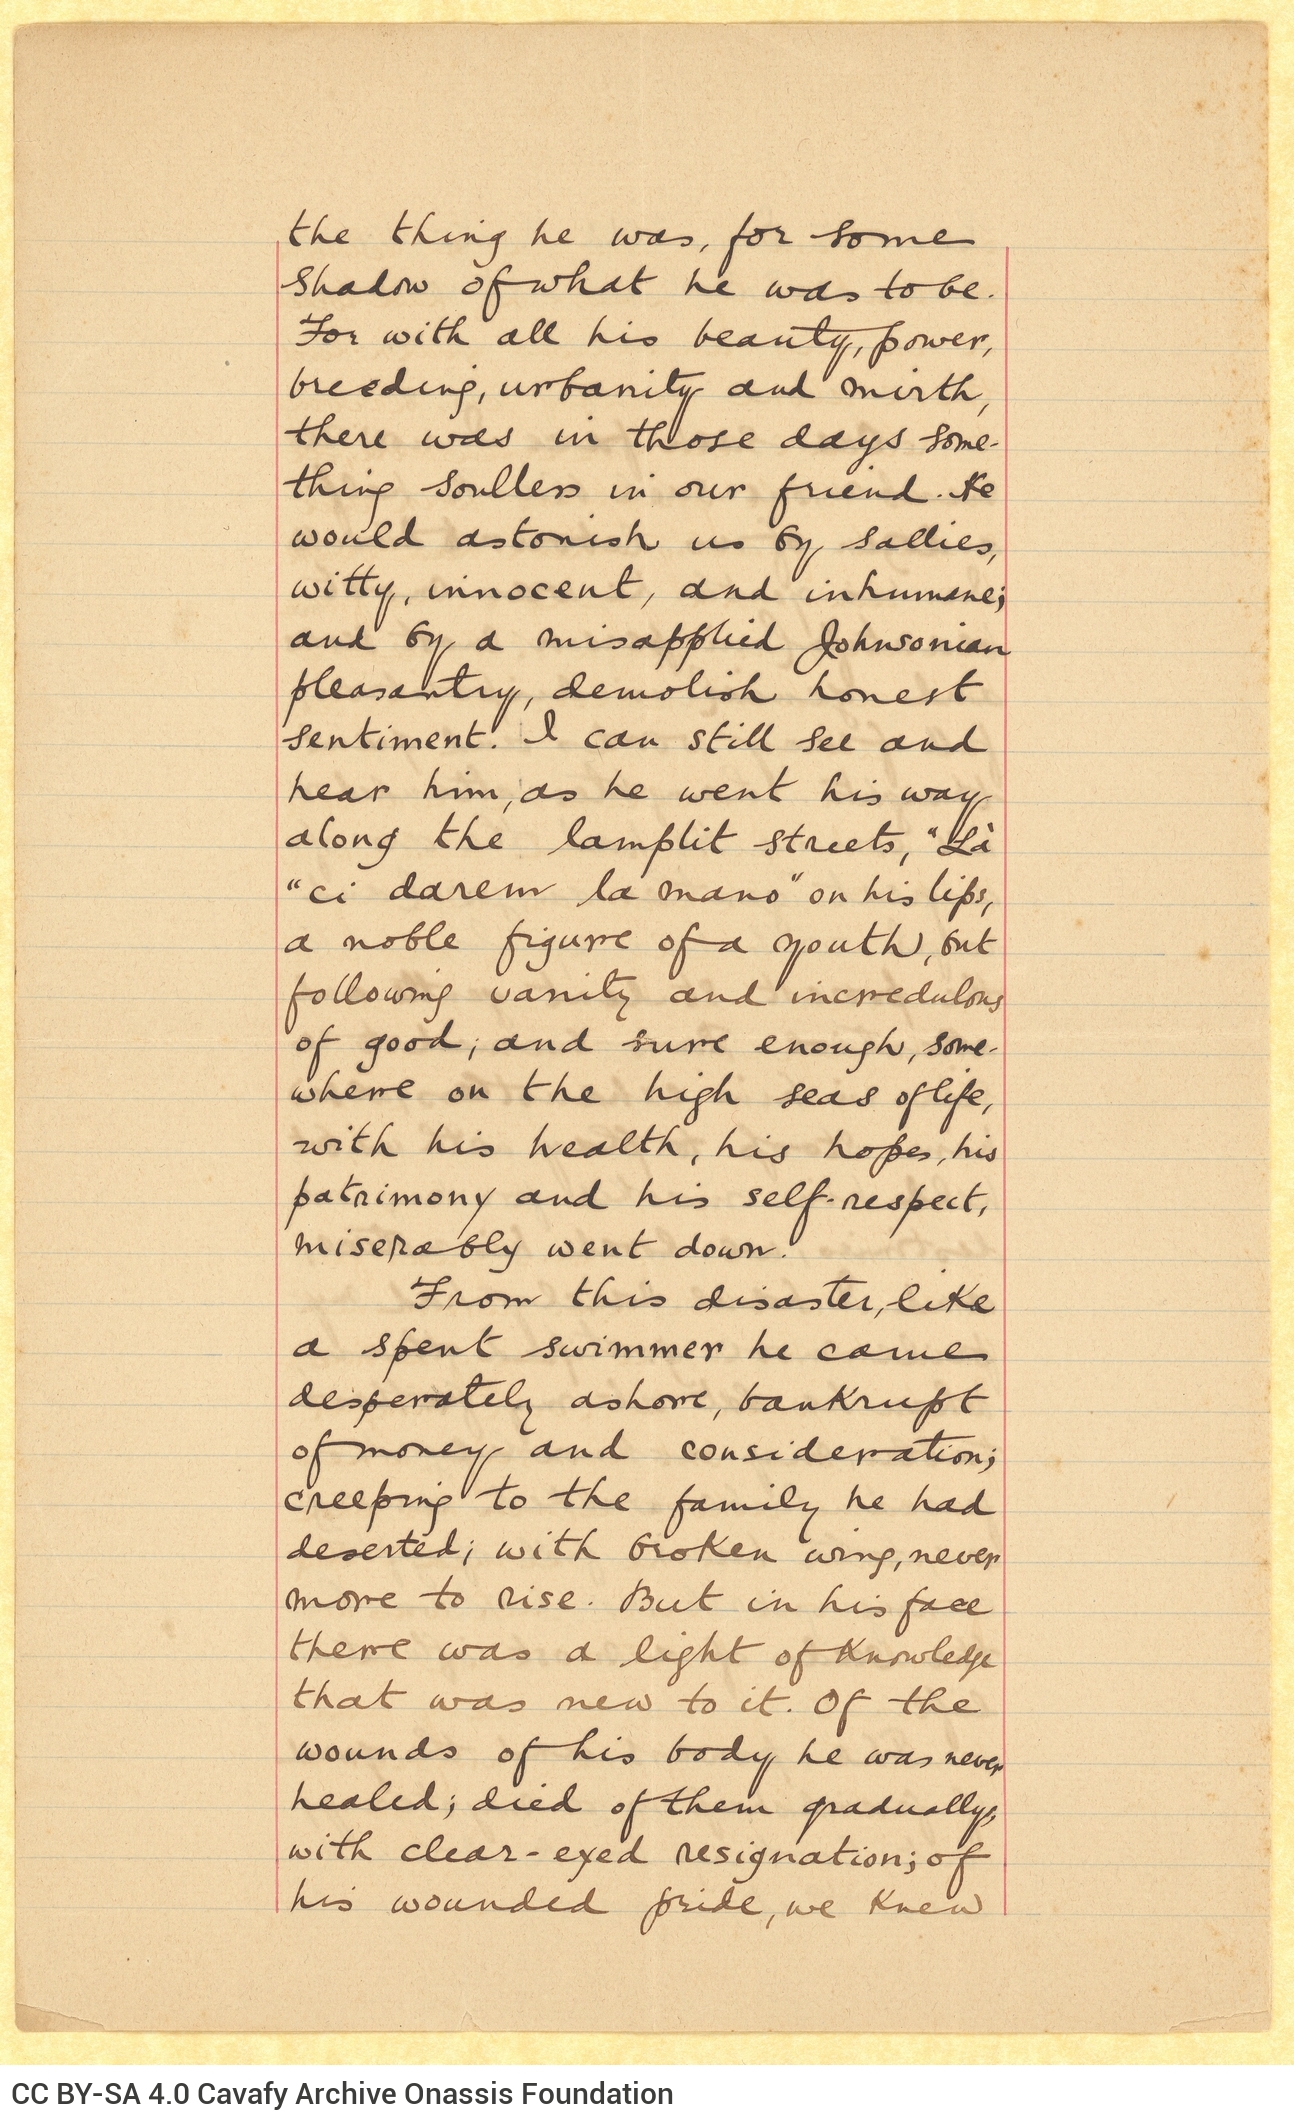 the thing he was, for some
shadow of what he was to be.
For with all his beauty, power,
breeding, urbanity and mirth,
there was in those days some-
thing soulless in our friend. He
would astonish us by sallies,
witty, innocent, and inhumane;
and by a misapplied Johnsonian
pleasantry, demolish honest
sentiment. I can still see and
hear him, as he went his way
along the lamplit streets, "Là
"ci darem la mano" on his lips,
a noble figure of a youth, but
following vanity and incredulous
of good; and sure enough, some-
where on the high seas of life,
with his health, his hopes, his
patrimony and his self-respect,
miserably went down.
From this disaster, like
a spent swimmer he came
desperately ashore, bankrupt
of money and consideration;
creeping to the family he had
deserted; with broken wing, never
more to rise. But in his face
there was a light of knowledge
that was new to it. Of the
wounds of his body he was never
healed; died of them gradually,
with clear-eyed resignation; of
his wounded pride, we knew
CC BY-SA 4.0 Cavafy Archive Onassis Foundation